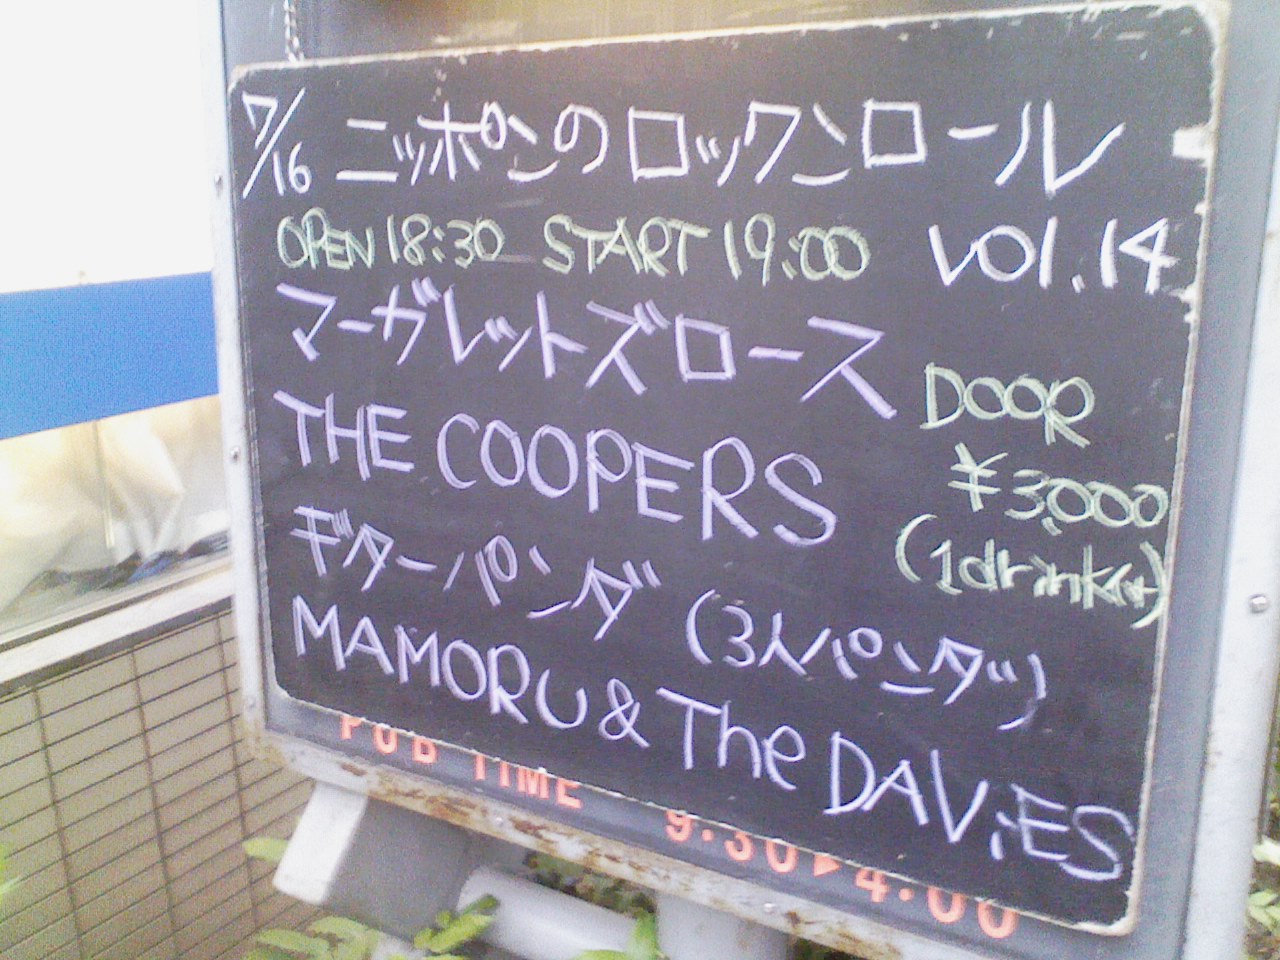 7/16 ニッポンのロックンロール
OPEN 18:30 START 19:00 VOl.14
マーガレットズロース
THE COOPERS
DOOR
¥3,000
(1drink付)
ギターパンダ (3人パンダ)
MAMORU & The DAViES
PUB TIME 9:30▶4:00